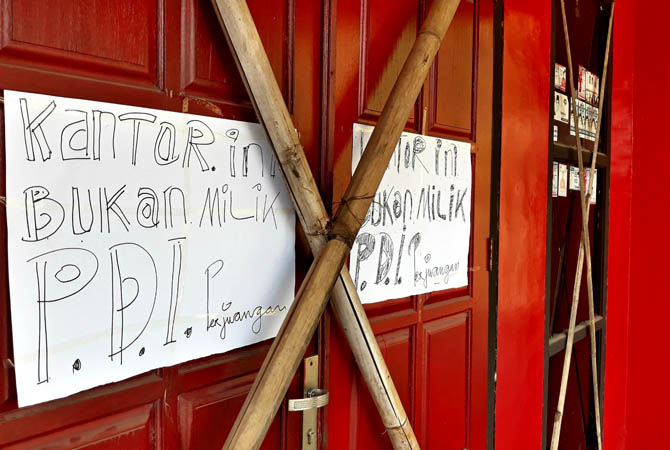 KANTOR. ini
BUKAN MiLiK
P.D.I. Perjuangan
OR ini
BUKAN MiLiK
P.D.I. Perjuangan